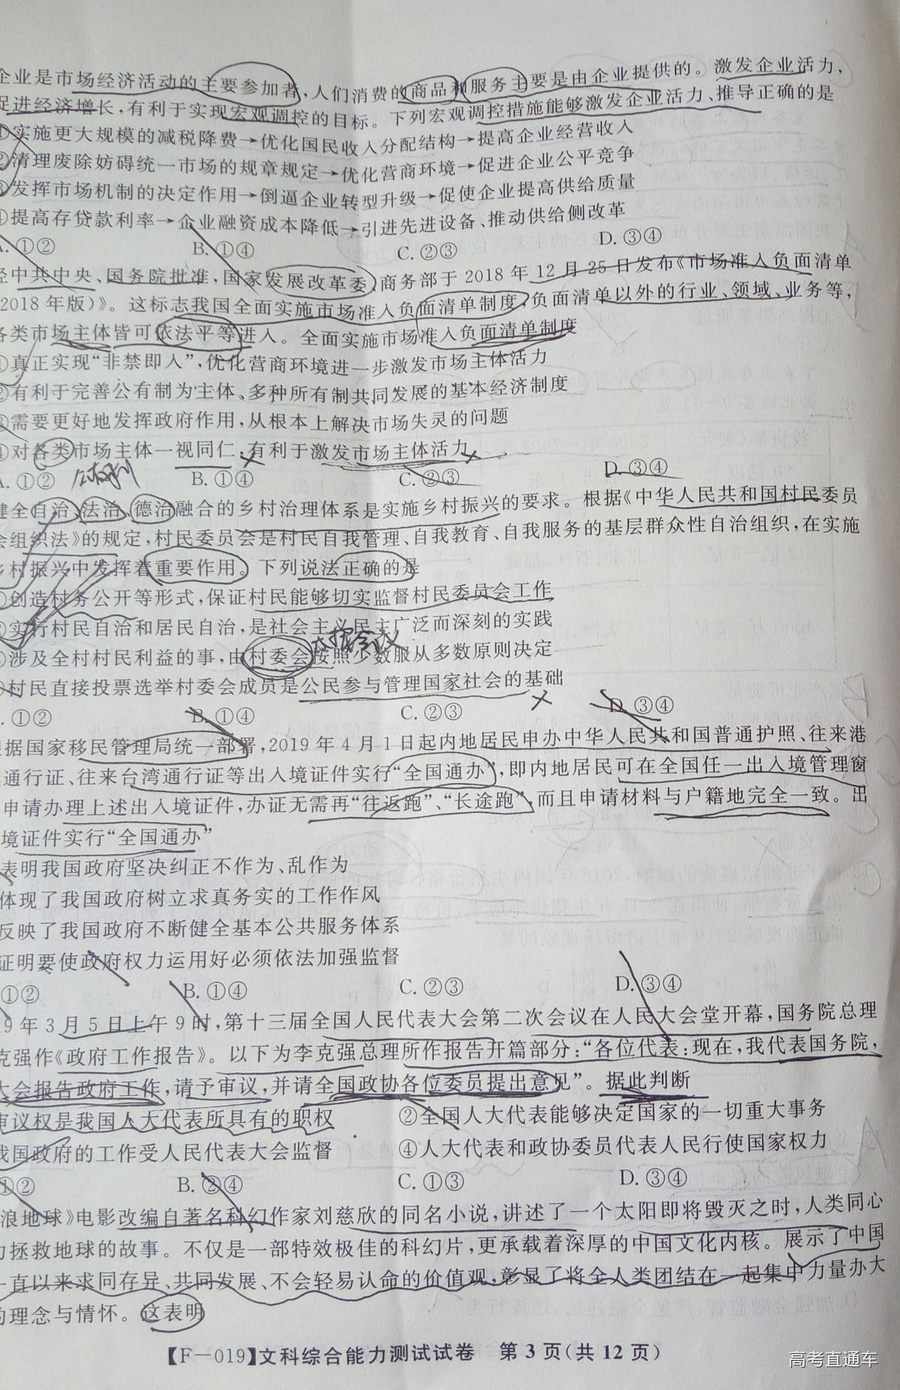 企业是市场经济活动的主要参加者,人们消费的商品和服务主要是由企业提供的。激发企业活力,
促进经济增长,有利于实现宏观调控的目标。下列宏观调控措施能够激发企业活力、推导正确的是
①实施更大规模的减税降费→优化国民收入分配结构→提高企业经营收入
②清理废除妨碍统一市场的规章规定→优化营商环境→促进企业公平竞争
③发挥市场机制的决定作用→倒逼企业转型升级→促使企业提高供给质量
④提高存贷款利率→企业融资成本降低→引进先进设备、推动供给侧改革
A. ①② B. ①④ C. ②③ D. ③④
经中共中央、国务院批准,国家发展改革委、商务部于 2018 年 12 月 25 日发布《市场准入负面清单
2018 年版)》。这标志我国全面实施市场准入负面清单制度,负面清单以外的行业、领域、业务等,
各类市场主体皆可依法平等进入。全面实施市场准入负面清单制度
①真正实现“非禁即入”,优化营商环境进一步激发市场主体活力
②有利于完善公有制为主体、多种所有制共同发展的基本经济制度
③需要更好地发挥政府作用,从根本上解决市场失灵的问题
④对各类市场主体一视同仁,有利于激发市场主体活力
A. ①② B. ①④ C. ②③ D. ③④
健全自治、法治、德治融合的乡村治理体系是实施乡村振兴的要求。根据《中华人民共和国村民委员
会组织法》的规定,村民委员会是村民自我管理、自我教育、自我服务的基层群众性自治组织,在实施
乡村振兴中发挥着重要作用。下列说法正确的是
①创造村务公开等形式,保证村民能够切实监督村民委员会工作
②实行村民自治和居民自治,是社会主义民主广泛而深刻的实践
③涉及全村村民利益的事,由村委会按照少数服从多数原则决定
④村民直接投票选举村委会成员是公民参与管理国家社会的基础
. ①② B. ①④ C. ②③ D. ③④
根据国家移民管理局统一部署,2019 年 4 月 1 日起内地居民申办中华人民共和国普通护照、往来港
通行证、往来台湾通行证等出入境证件实行“全国通办”,即内地居民可在全国任一出入境管理窗
申请办理上述出入境证件,办证无需再“往返跑”、“长途跑”,而且申请材料与户籍地完全一致。出
境证件实行“全国通办”
表明我国政府坚决纠正不作为、乱作为
体现了我国政府树立求真务实的工作作风
反映了我国政府不断健全基本公共服务体系
证明要使政府权力运用好必须依法加强监督
①② B. ①④ C. ②③ D. ③④
9 年 3 月 5 日上午 9 时,第十三届全国人民代表大会第二次会议在人民大会堂开幕,国务院总理
克强作《政府工作报告》。以下为李克强总理所作报告开篇部分:“各位代表:现在,我代表国务院,
大会报告政府工作,请予审议,并请全国政协各位委员提出意见”。据此判断
审议权是我国人大代表所具有的职权 ②全国人大代表能够决定国家的一切重大事务
我国政府的工作受人民代表大会监督 ④人大代表和政协委员代表人民行使国家权力
①② B. ②④ C. ①③ D. ③④
浪地球》电影改编自著名科幻作家刘慈欣的同名小说,讲述了一个太阳即将毁灭之时,人类同心
力拯救地球的故事。不仅是一部特效极佳的科幻片,更承载着深厚的中国文化内核。展示了中国
一直以来求同存异、共同发展、不会轻易认命的价值观,彰显了将全人类团结在一起集中力量办大
的理念与情怀。这表明
【F—019】文科综合能力测试试卷 第 3 页(共 12 页)
高考直通车